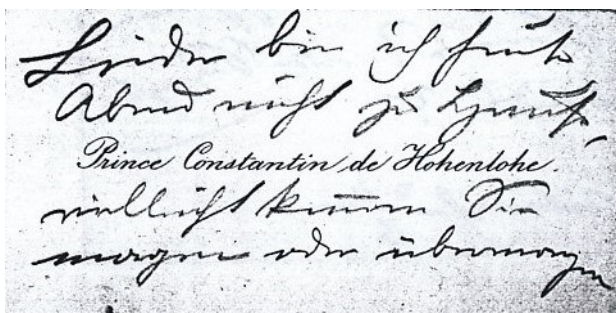 Leider bin ich heute
Abend nicht zu Hause,
Prince Constantin de Hohenlohe.
vielleicht kommen Sie
morgen oder übermorgen